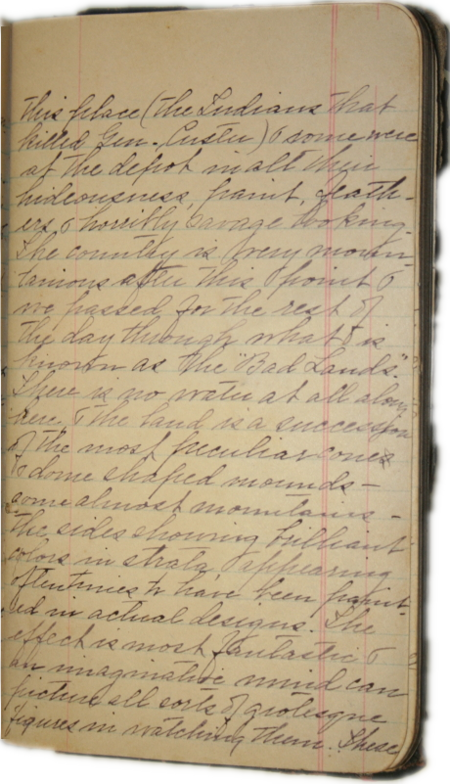 this place (the Indians that
killed Gen. Custer) & some were
at the depot in all their
hideousness, paint, feath-
ers, & horribly savage looking.
The country is very moun-
tanious after this point &
we passed for the rest of
the day through what is
known as the "Bad Lands".
There is no water at all along
here, & the land is a succession
of the most peculiar cones
& dome shaped mounds -
some almost mountains -
the sides showing brilliant
colors in strata appearing
oftentimes to have been paint-
ed in actual designs. The
effect is most fantastic &
an imaginative mind can
picture all sorts of grotesque
figures in watching them. These